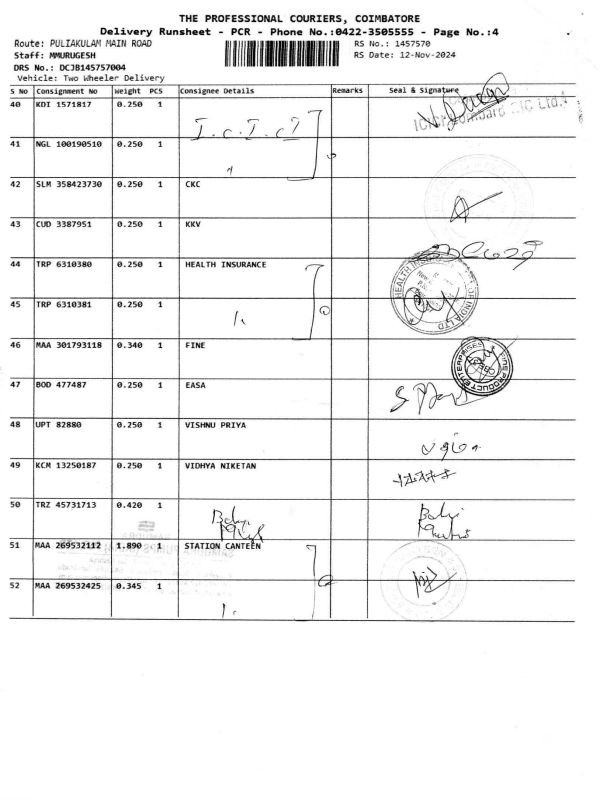 THE PROFESSIONAL COURIERS, COIMBATORE
Delivery Runsheet - PCR - Phone No.:0422-3505555 - Page No.:4
Route: PULIAKULAM MAIN ROAD RS No.: 1457570
Staff: MMURUGESH RS Date: 12-Nov-2024
DRS No.: DCJB145757004
Vehicle: Two Wheeler Delivery
S No Consignment No Weight PCS Consignee Details Remarks Seal & Signature
40 KDI 1571817 0.250 1 I.C.I.CI
41 NGL 100190510 0.250 1
42 SLM 358423730 0.250 1 CKC
43 CUD 3387951 0.250 1 KKV
44 TRP 6310380 0.250 1 HEALTH INSURANCE
45 TRP 6310381 0.250 1
46 MAA 301793118 0.340 1 FINE FINE PRODUCT ENTERPRISES
47 BOD 477487 0.250 1 EASA
48 UPT 82880 0.250 1 VISHNU PRIYA
49 KCM 13250187 0.250 1 VIDHYA NIKETAN
50 TRZ 45731713 0.420 1
51 MAA 269532112 1.890 1 STATION CANTEEN
52 MAA 269532425 0.345 1